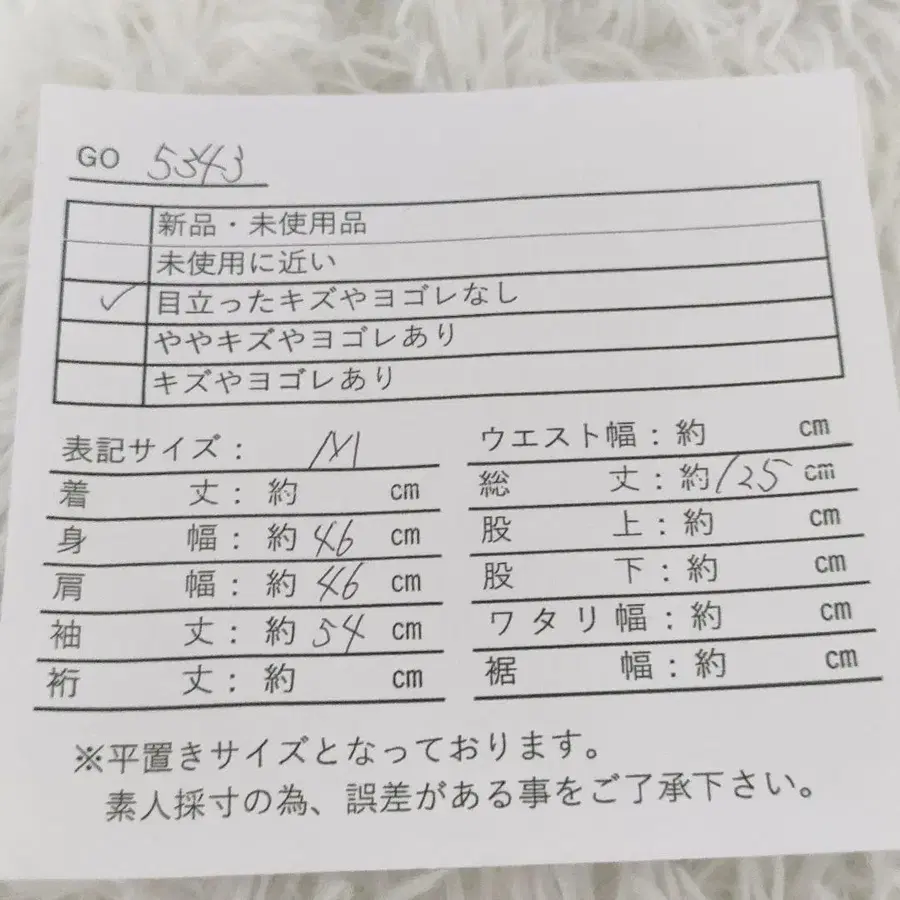 GO 5343
新品・未使用品
未使用に近い
✓ 目立ったキズやヨゴレなし
ややキズやヨゴレあり
キズやヨゴレあり
表記サイズ： M
着 丈：約 cm
身 幅：約 46 cm
肩 幅：約 46 cm
袖 丈：約 54 cm
裄 丈：約 cm
ウエスト幅：約 cm
総 丈：約 125 cm
股 上：約 cm
股 下：約 cm
ワタリ幅：約 cm
裾 幅：約 cm
※平置きサイズとなっております。
素人採寸の為、誤差がある事をご了承下さい。